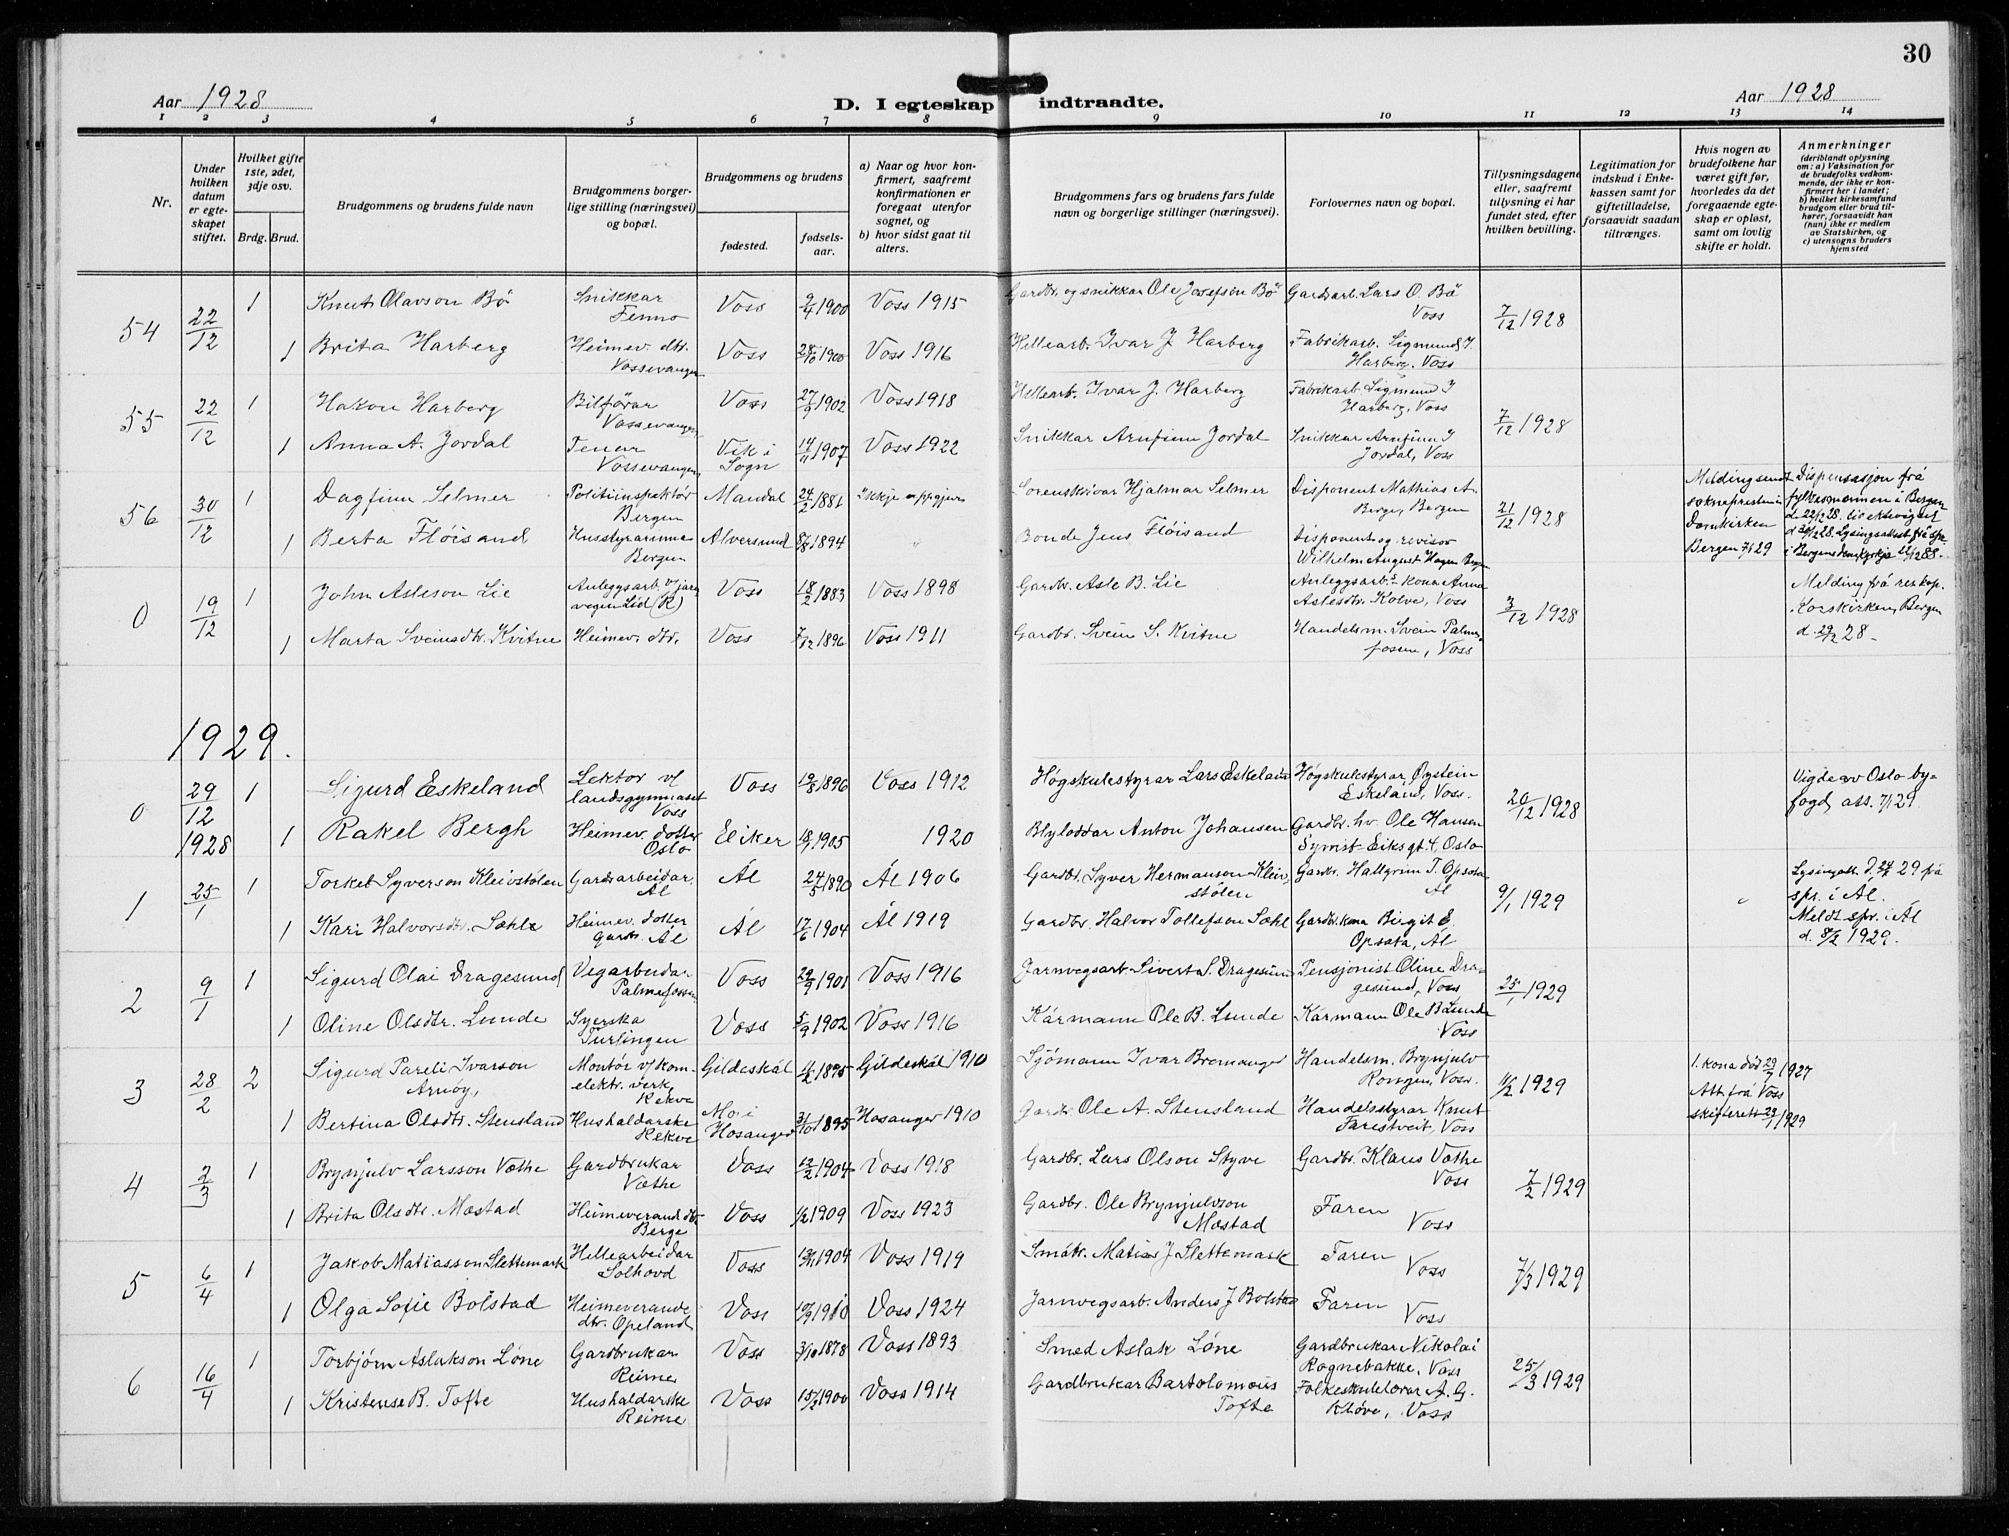 30
Aar 1928
D. I egteskap indtraadte.
Aar 1928
1 2 3 4 5 6 7 8 9 10 11 12 13 14
Nr.
Under hvilken datum er egteskapet stiftet.
Hvilket gifte 1ste, 2det, 3dje osv.
Brdg. Brud.
Brudgommens og brudens fulde navn
Brudgommens borgerlige stilling (næringsvei) og bopæl.
Brudgommens og brudens
fødested.
fødselsaar.
a) Naar og hvor konfirmert, saafremt konfirmationen er foregaat utenfor sognet, og
b) hvor sidst gaat til alters.
Brudgommens fars og brudens fars fulde navn og borgerlige stillinger (næringsvei).
Forlovernes navn og bopæl.
Tillysningsdagene eller, saafremt tillysning ei har fundet sted, efter hvilken bevilling.
Legitimation for indskud i Enkekassen samt for giftetilladelse, forsaavidt saadan tiltrænges.
Hvis nogen av brudefolkene har været gift før, hvorledes da det foregaaende egteskap er opløst, samt om lovlig skifte er holdt.
Anmerkninger
(deriblandt oplysning om: a) Vaksination for de brudefolks vedkommende, der ikke er konfirmert her i landet; b) hvilket kirkesamfund brudgom eller brud tilhører, forsaavidt han (hun) ikke er medlem av Statskirken, og c) utensogns bruders hjemsted
54 22/12 1 Knut Olavson Bø Snikkar Finno Voss 9/4 1900 Voss 1915 Gardbr. og snikkar Ole Josefson Bø Gardsarb. Lars O. Bø Voss 7/12 1928
1 Brita Harberg Heimev. dtr. Vossevangen Voss 1900 Voss 1916 Hellearb. Ivar J. Harberg Fabrikarb. Sigmund I. Harberg, Voss
55 22/12 1 Hakon Harberg Bilførar Vossevangen Voss 27/9 1902 Voss 1918 Hellearb. Ivar J. Harberg Fabrikarb. Sigmund I Harberg, Voss 7/12 1928
1 Anna A. Jordal Tenar Vossevangen Vik i Sogn 14/11 1907 Voss 1922 Snikkar Arnfinn Jordal Snikkar Arnfinn I Jordal, Voss
56 30/12 1 Dagfinn Selmer Politiinspektør Bergen Mandal 24/2 1881 Ikkje uppgjeve Sorenskrivar Hjalmar Selmer Disponent Mathias A. Berge, Bergen 21/12 1928 Melding sendt soknepresten i Domkirken Bergen 7/1 29 Dispensasjon frå fylkesmannen i Bergen d. 22/12 28.
1 Berta Fløisand Husstyrarinne Bergen Alversund 8/8 1894 " Bonde Jens Fløisand Disponent og revisor Wilhelm August Hagen Bergen
0 19/12 1 John Asleson Lie Anleggsarb. v/jarnvegen Lid (R) Voss 18/2 1883 Voss 1898 Gardbr. Asle B. Lie Anleggsarb. kona Anna Aslesdtr. Kolve, Voss 3/12 1928 Melding frå res. kap. Korskirken, Bergen d. 29/12 28
1 Marta Sveinsdtr. Kvitne Heimev. dtr. Voss 7/12 1896 Voss 1911 Gardbr. Svein S. Kvitne Handelsm. Svein Palmafossen, Voss
1929.
0 29/12 1928 1 Sigurd Eskeland Lektor v/ landsgymnaset Voss Voss 19/8 1896 Voss 1912 Høgskulestyrar Lars Eskeland Høgskulestyrar Øystein Eskeland, Voss. 20/12 1928 Vigde av Oslo byfogd, att. 7/1 29.
1 Rakel Bergh Heimev. dotter Oslo Eiker 18/9 1905 1920 Blyloddar Anton Johansen Gardbr. hv. Ole Hansen Symst. Eiksgt. 4, Oslo
1 25/1 1 Torkel Syverson Kleivstølen Gardsarbeidar. Ål Ål 24/5 1890 Ål 1906 Gardbr. Syver Hermanson Kleivstølen Gardbr. Hallgrim T. Opsata Ål 9/1 1929 " Lysingsatt. 29 frå spr. i Ål. Meldt spr. i Ål d. 8/2 1929.
1 Kari Halvorsdtr. Sæhle Heimev. dotter Gardbr. Ål Ål 17/6 1904 Ål 1919 Gardbr. Halvor Tollefson Sæhl Gardbr. kona Birgit E. Opsata, Ål
2 9/1 1 Sigurd Olai Dragesund Vegarbeidar Palmafossen Voss 29/9 1901 Voss 1916 Jarnvegsarb. Sivert S. Dragesund Pensjonist Oline Dragesund, Voss 25/1 1929
1 Oline Olsdtr. Lunde Syerska Turlingen Voss 5/9 1902 Voss 1916 Kårmann Ole B. Lunde Kårmann Ole B. Lunde Voss
3 28/2 2 Sigurd Pareli Ivarson Arnøy, Montør v/kom. elektr. verk, Rekve Gildeskål 11/2 1895 Gildeskål 1910 Sjømann Ivar Bremanger Handelsm. Brynjulv Rongen, Voss. 11/2 1929 1. kona død 29/7 1927 Att. frå Voss skifterett 23/1 1929
1 Bertina Olsdtr. Stensland Hushaldarske Rekve Mo i Hosanger 31/10 1895 Hosanger 1910 Gardbr. Ole A. Stensland Handelsstyrar Knut Farestveit, Voss
4 2/3 1 Brynjulv Larsson Væthe Gardbrukar Væthe Voss 12/2 1904 Voss 1918 Gardbr. Lars Olson Styve Gardbr. Klaus Væthe Voss 7/2 1929
1 Brita Olsdtr. Mæstad Heimeverande dtr. Berge Voss 1/2 1909 Voss 1923 Gardbr. Ole Brynjulvson Mæstad Faren Voss
5 6/4 1 Jakob Matiasson Slettemark Hellearbeidar Solhovd Voss 1904 Voss 1919 Småbr. Matias J Slettemark Faren Voss 7/3 1929
1 Olga Sofie Bolstad Heimeverande dtr. Opeland Voss 10/9 1910 Voss 1924 Jarnvegsarb. Anders J Bolstad Faren Voss
6 16/4 1 Torbjørn Aslakson Løne Gardbrukar Reime Voss 3/10 1878 Voss 1893 Smed Aslak Løne Gardbrukar Nikolai Rognebakke, Voss 25/3 1929
1 Kristense B. Tofte Hushaldarske Reime Voss 15/2 1900 Voss 1914 Gardbrukar Bartolomeus Tofte Folkeskulelærar A. G. Kløve, Voss